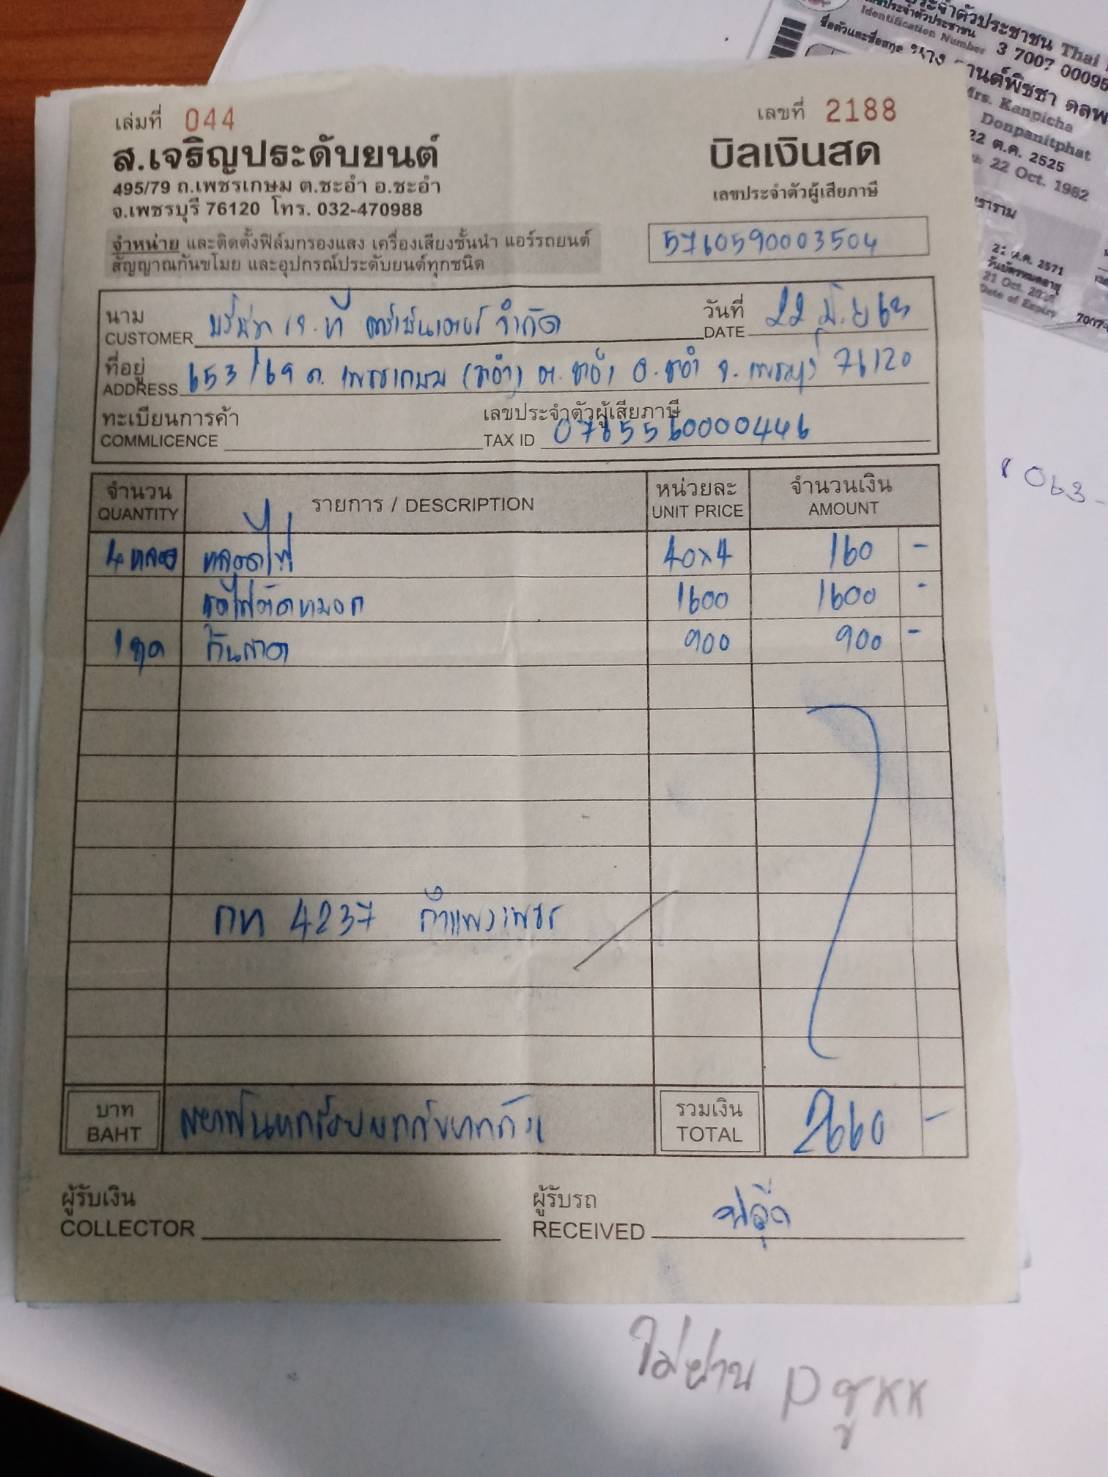 ระจำตัวประชาชน Thai
เลขประจำตัวประชาชน
Identification Number 3 7007 00095
ชื่อตัวและชื่อสกุล นาง กานต์พิชชา ดลพ
Mrs. Kanpicha
Donpanitphat
22 ต.ค. 2525
22 Oct. 1982
ต.ค. 2571
วันบัตรหมดอายุ
21 Oct.
Date of Expiry
เล่มที่ 044
เลขที่ 2188
ส.เจริญประดับยนต์
บิลเงินสด
495/79 ถ.เพชรเกษม ต.ชะอำ อ.ชะอำ
เลขประจำตัวผู้เสียภาษี
จ.เพชรบุรี 76120 โทร. 032-470988
5760590003504
จำหน่าย และติดตั้งฟิล์มกรองแสง เครื่องเสียงชั้นนำ แอร์รถยนต์
สัญญาณกันขโมย และอุปกรณ์ประดับยนต์ทุกชนิด
นาม บริษัท เจ.ที จำกัด วันที่ 22 มิ.ย 63
CUSTOMER DATE
ที่อยู่ 653/69 ถ. เพชรเกษม (ชะอำ) ต.ชะอำ อ.ชะอำ จ.เพชรบุรี 76120
ADDRESS
ทะเบียนการค้า เลขประจำตัวผู้เสียภาษี
COMMLICENCE TAX ID 0765560000446
จำนวน รายการ / DESCRIPTION หน่วยละ จำนวนเงิน
QUANTITY UNIT PRICE AMOUNT
4 หลอด หลอดไฟ 40x4 160 -
ชุดไฟตัดหมอก 1600 1600 -
1 ชุด กันสาด 900 900 -
กท 4237 กำแพงเพชร
บาท สองพันหกร้อยหกสิบบาทถ้วน รวมเงิน 2660 -
BAHT TOTAL
ผู้รับเงิน ผู้รับรถ
COLLECTOR RECEIVED
063-
ไม่ผ่าน